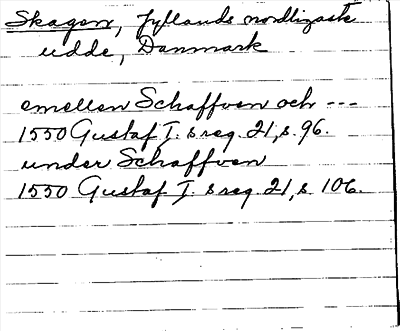 Skagen, Jyllands nordligaste
udde, Danmark
emellan Schaffven och ---
1550 Gustaf I. s reg. 21, s. 96.
under Schaffven
1550 Gustaf I. s reg. 21, s. 106.